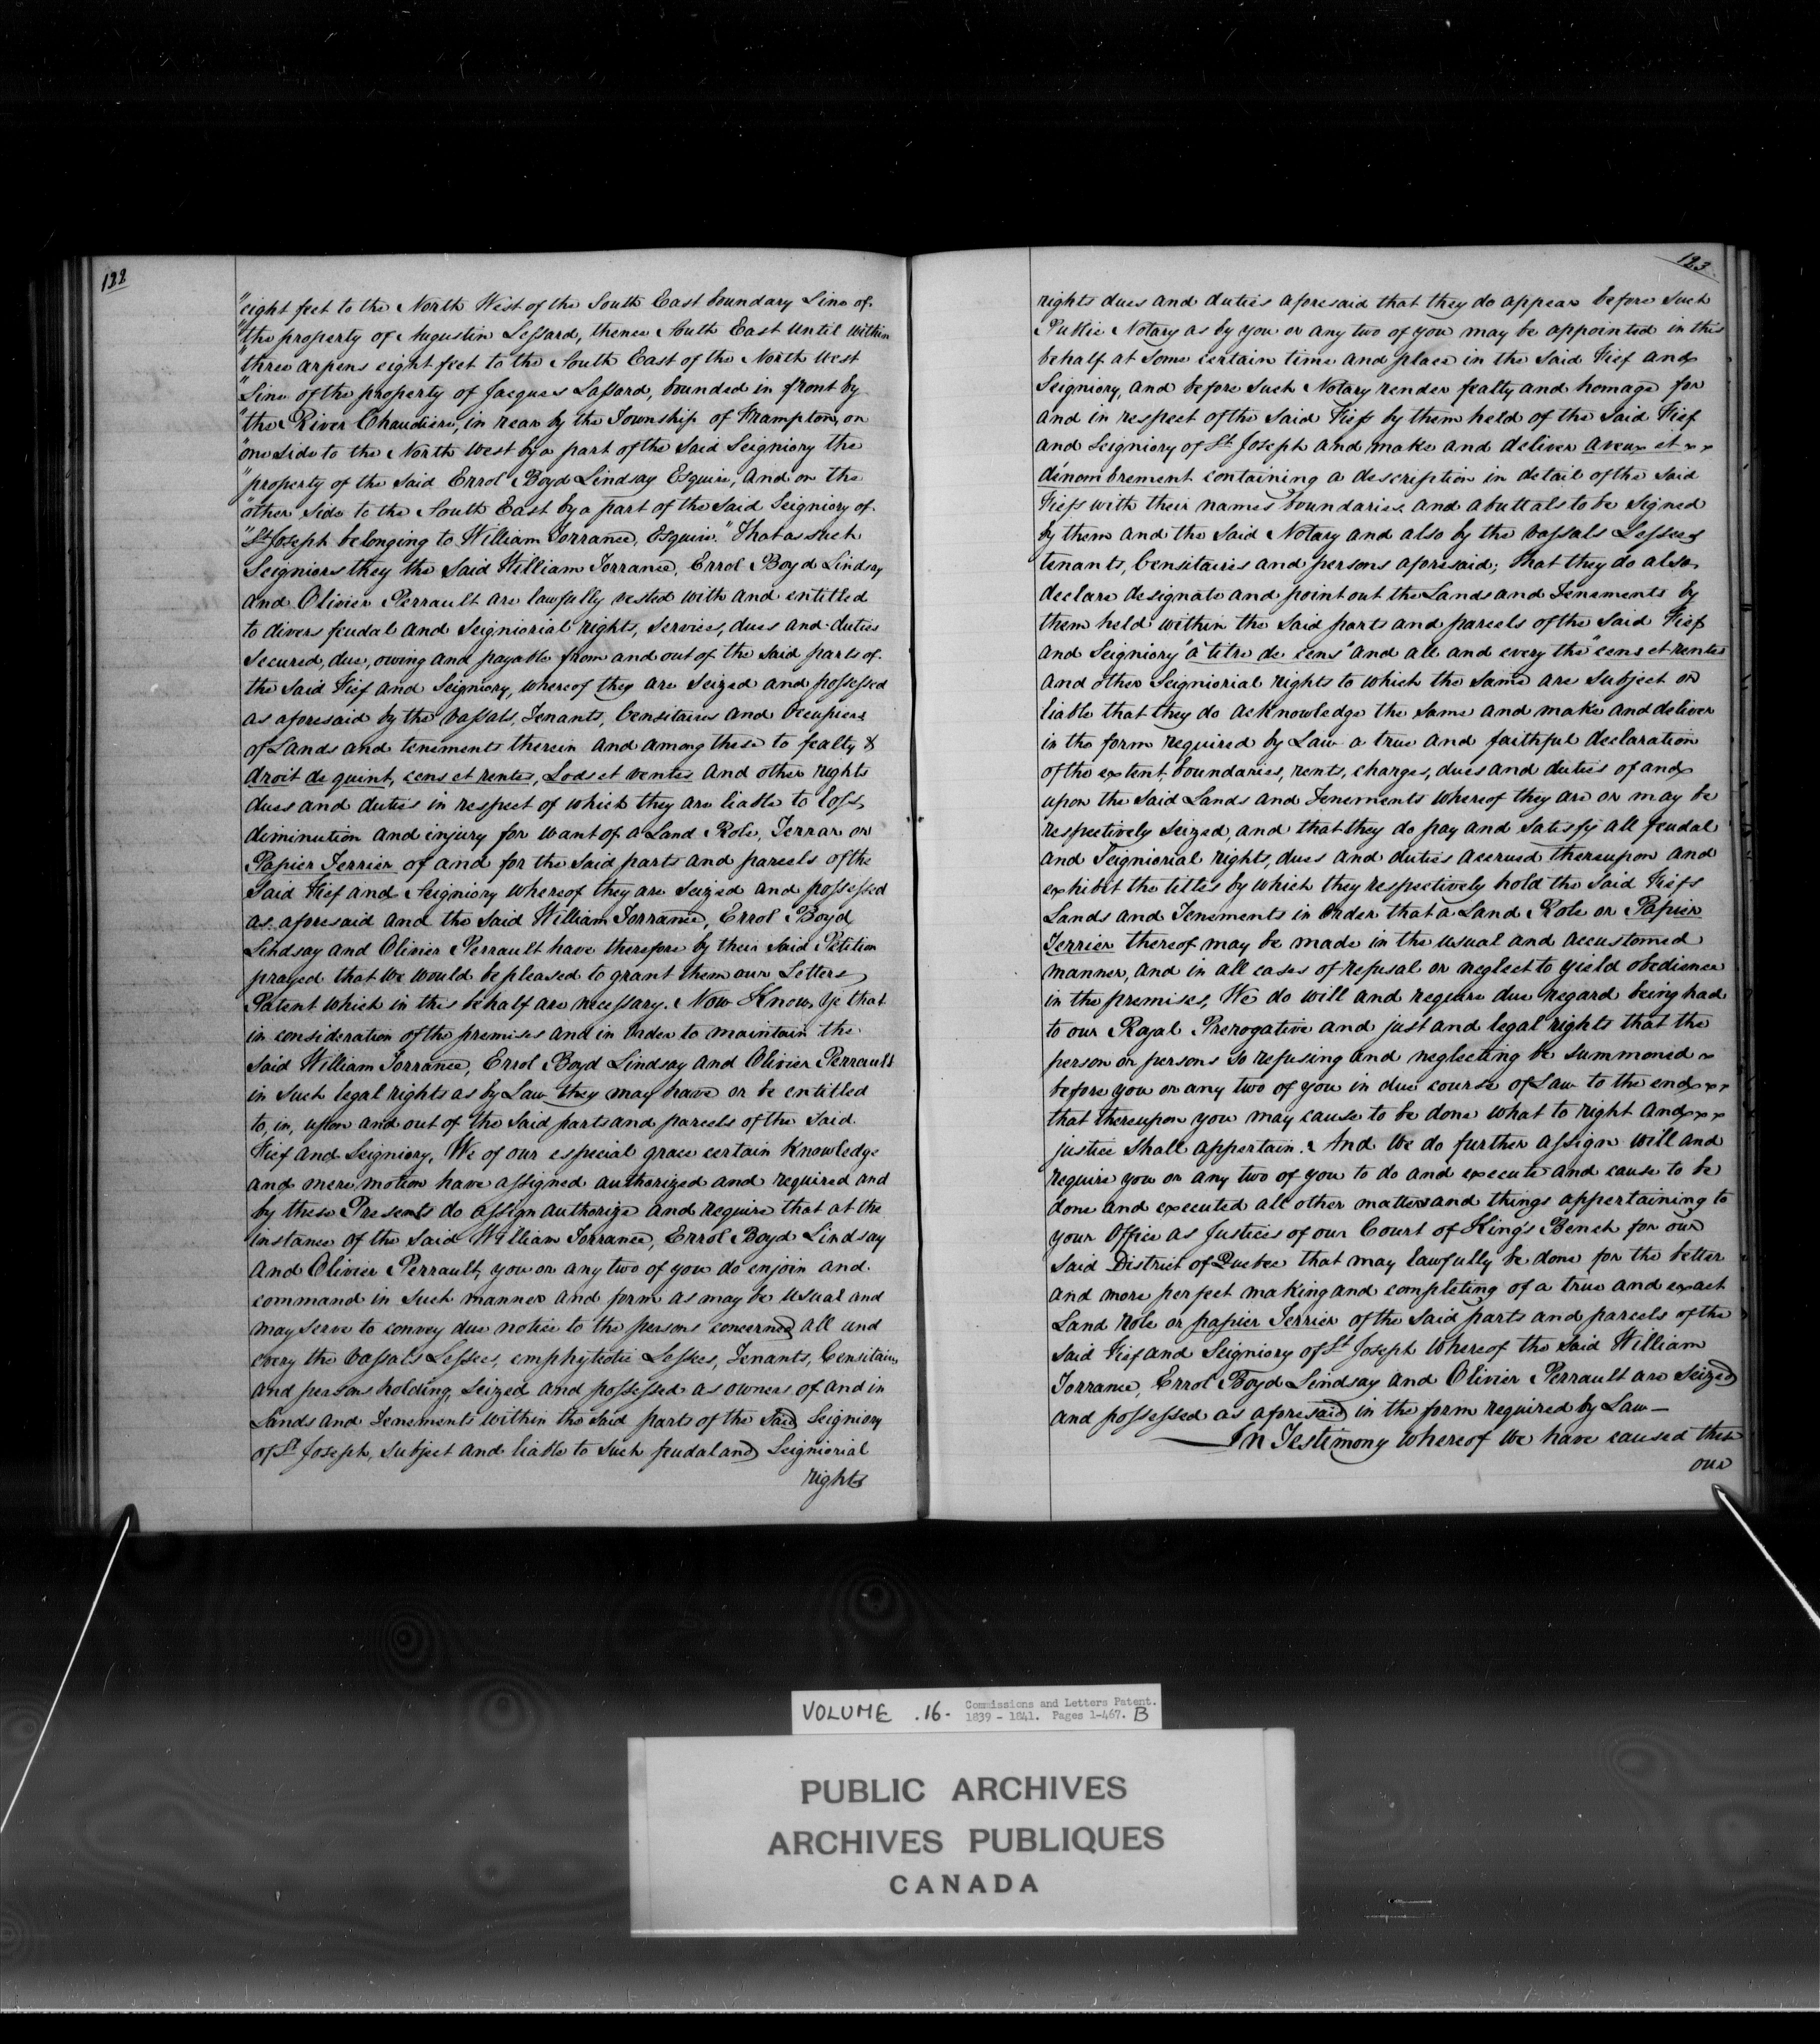 122
"eight feet to the North West of the South East boundary Line of
"the property of Augustin Lessard, thence South East until within
"three arpens eight feet to the South East of the North West
"Line of the property of Jacques Lessard, bounded in front by
"the River Chaudiere, in rear by the Township of Frampton, on
"one side to the North West by a part of the said Seigniory the
"property of the said Errol Boyd Lindsay Esquire, and on the
"other side to the South East by a part of the said Seigniory of
"St Joseph belonging to William Torrance, Esquire." That as such
Seigniors they the said William Torrance, Errol Boyd Lindsay
and Olivier Perrault are lawfully vested with and entitled
to divers feudal and Seigniorial rights, services, dues and duties
secured, due, owing and payable from and out of the said parts of
the said Fief and Seigniory, whereof they are Seized and possessed
as aforesaid by the vassals, Tenants, Censitaires and Occupiers
of Lands and tenements therein and among these to fealty &
droit de quint, cens et rentes, Lods et ventes and other rights
dues and duties in respect of which they are liable to loss,
diminution and injury for want of a Land Role, Terrar or
Papier Terrier of and for the said parts and parcels of the
said Fief and Seigniory whereof they are seized and possessed
as aforesaid and the said William Torrance, Errol Boyd
Lindsay and Olivier Perrault have therefore by their said Petition
prayed that We would be pleased to grant them our Letters
Patent which in this behalf are necessary. Now Know Ye that
in consideration of the premises and in order to maintain the
said William Torrance, Errol Boyd Lindsay and Olivier Perrault
in such legal rights as by Law they may have or be entitled
to, in, upon and out of the said parts and parcels of the said
Fief and Seigniory, We of our especial grace certain Knowledge
and mere motion have assigned authorized and required and
by these Presents do assign authorize and require that at the
instance of the said William Torrance, Errol Boyd Lindsay
and Olivier Perrault, you or any two of you do enjoin and
command in such manner and form as may be usual and
may serve to convey due notice to the persons concerned all and
every the vassals Lessees, emphyteotic Lessees, Tenants, Censitaires
and persons holding, seized and possessed as owners of and in
Lands and Tenements within the said parts of the said Seigniory
of St Joseph, subject and liable to such feudal and Seigniorial
rights
123.
rights dues and duties aforesaid that they do appear before such
Public Notary as by you or any two of you may be appointed in this
behalf at some certain time and place in the said Fief and
Seigniory, and before such Notary render fealty and homage for
and in respect of the said Fiefs by them held of the said Fief
and Seigniory of St Joseph and make and deliver aveux et x x
dénombrement containing a description in detail of the said
Fiefs with their names boundaries and abuttals to be signed
by them and the said Notary and also by the vassals Lessees
tenants, Censitaires and persons aforesaid; that they do also
declare designate and point out the Lands and Tenements by
them held within the said parts and parcels of the said Fief
and Seigniory "a titre de cens" and all and every the "cens et rentes
and other Seigniorial rights to which the same are subject or
liable that they do acknowledge the same and make and deliver
in the form required by Law a true and faithful declaration
of the extent, boundaries, rents, charges, dues and duties of and
upon the said Lands and Tenements whereof they are or may be
respectively seized, and that they do pay and satisfy all feudal
and Seigniorial rights, dues and duties accrued thereupon and
exhibit the titles by which they respectively hold the said Fiefs
Lands and Tenements in Order that a Land Role or Papier
Terrier thereof may be made in the usual and accustomed
manner, and in all cases of refusal or neglect to yield obedience
in the premises, We do will and require due regard being had
to our Royal Prerogative and just and legal rights that the
person or persons so refusing and neglecting be summoned x
before you or any two of you in due course of Law to the end x x
that thereupon you may cause to be done what to right and x x
justice shall appertain. And We do further assign will and
require you or any two of you to do and execute and cause to be
done and executed all other matters and things appertaining to
your Office as Justices of our Court of King's Bench for our
said District of Quebec that may lawfully be done for the better
and more perfect making and completing of a true and exact
Land Role or papier Terrier of the said parts and parcels of the
said Fief and Seigniory of St Joseph whereof the said William
Torrance, Errol Boyd Lindsay and Olivier Perrault are seized
and possessed as aforesaid in the form required by Law—
In Testimony whereof We have caused these
our
VOLUME .16. Commissions and Letters Patent.
1839 - 1841. Pages 1-467. B
PUBLIC ARCHIVES
ARCHIVES PUBLIQUES
CANADA